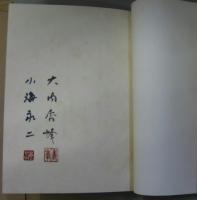 大内香峰
小海永二